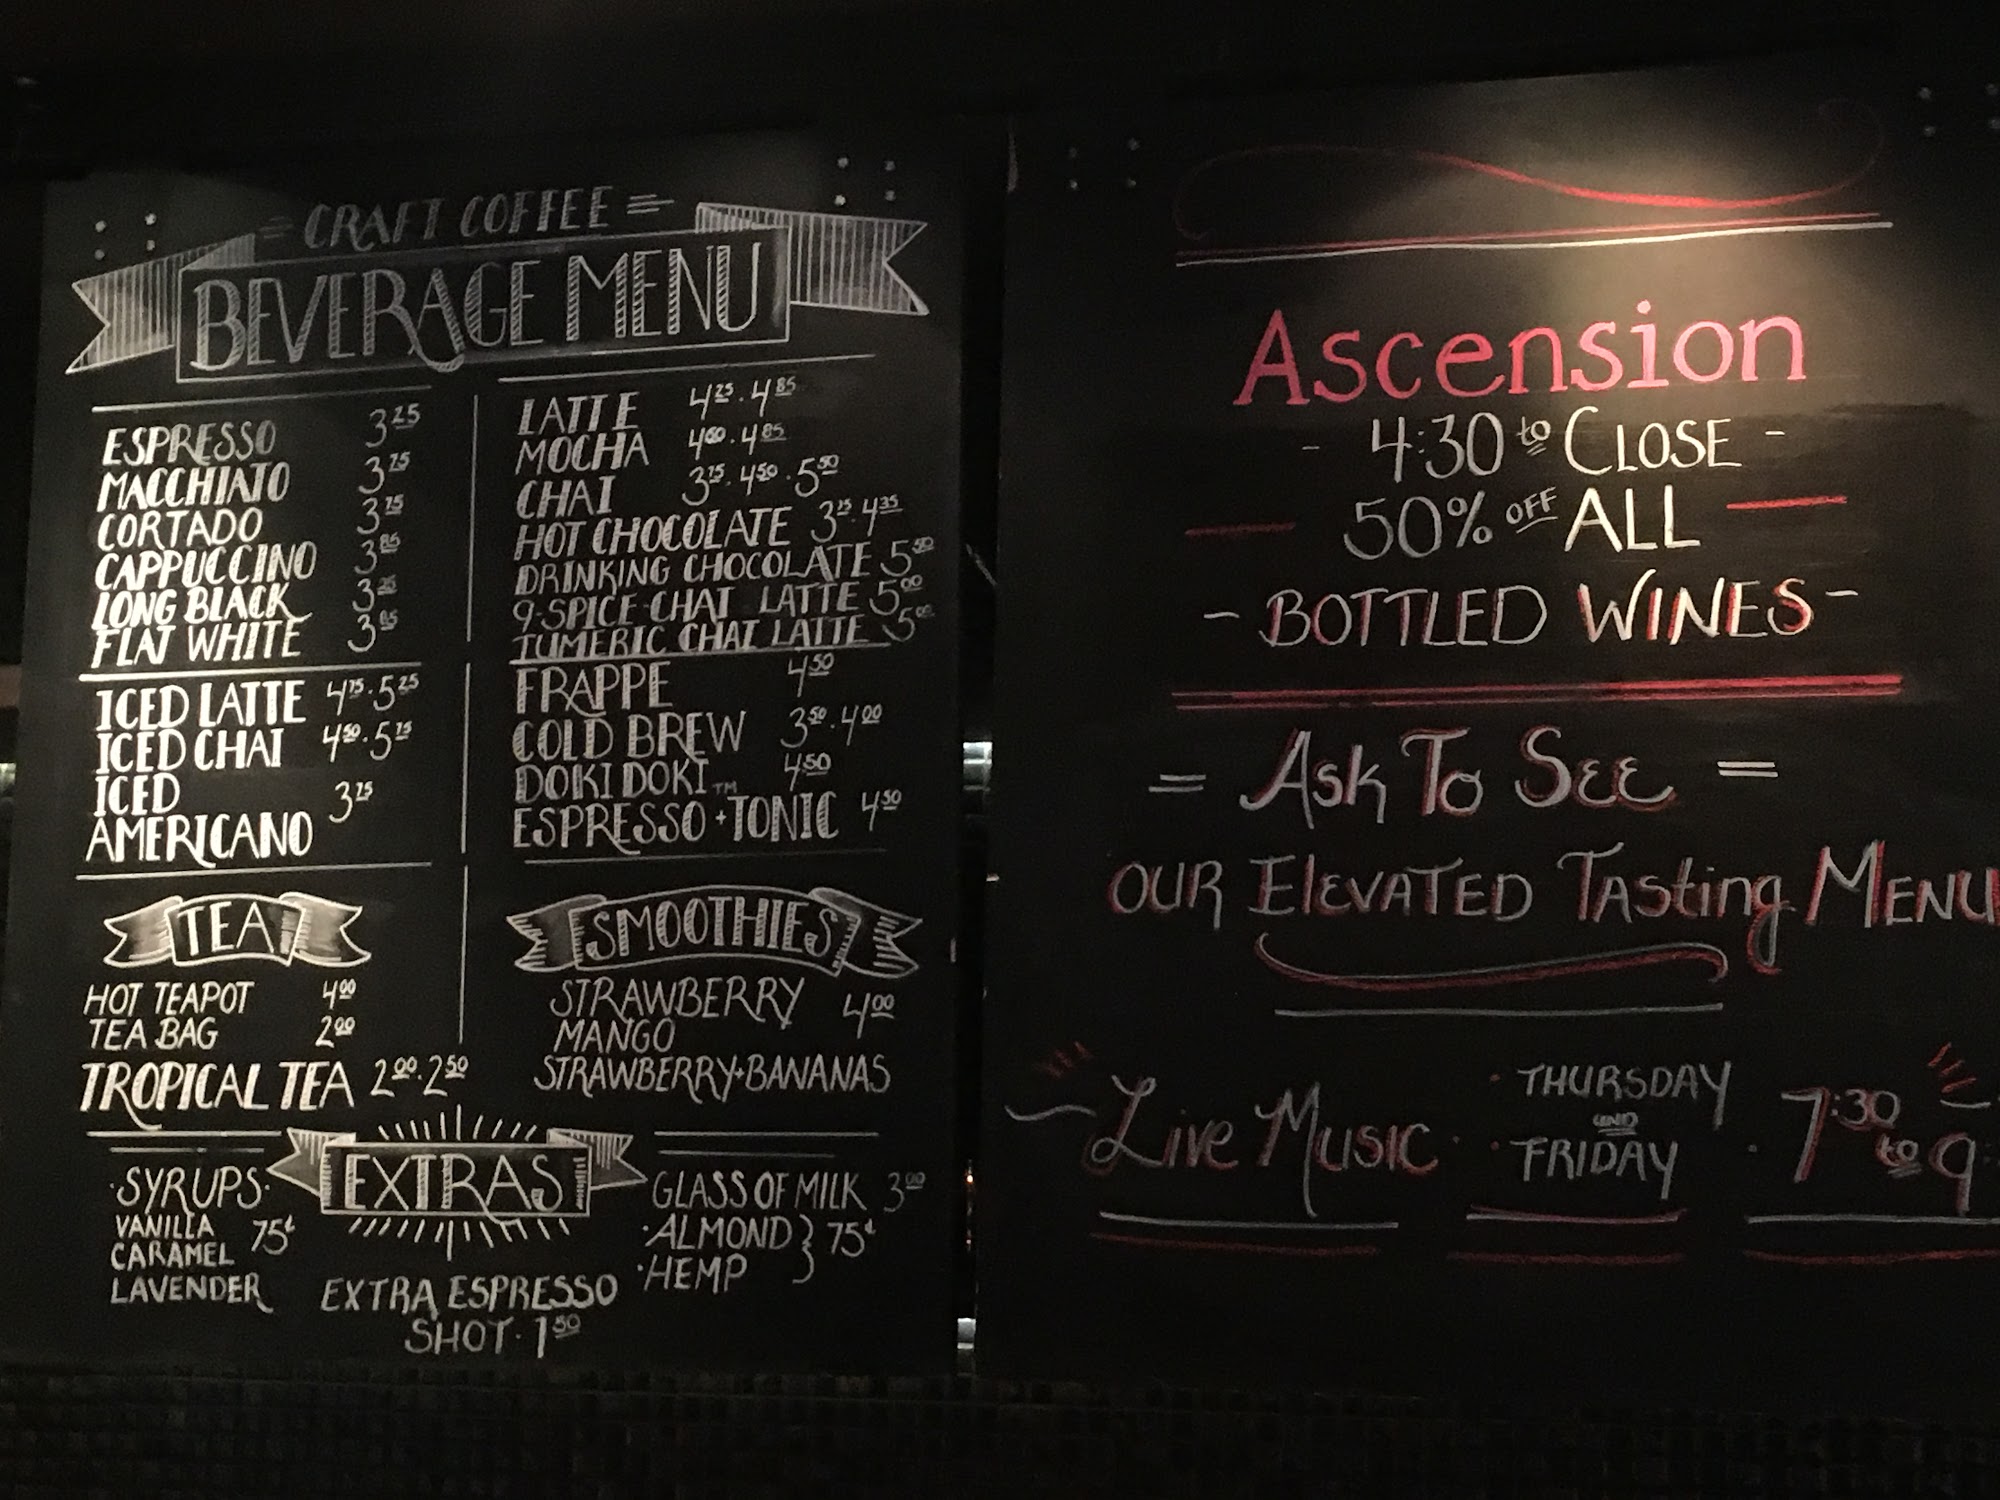 CRAFT COFFEE
BEVERAGE MENU
ESPRESSO 3.25
MACCHIATO 3.75
CORTADO 3.75
CAPPUCCINO 3.85
LONG BLACK 3.25
FLAT WHITE 3.85
ICED LATTE 4.75 . 5.25
ICED CHAI 4.50 . 5.75
ICED
AMERICANO 3.25
TEA
HOT TEAPOT 4.00
TEA BAG 2.00
TROPICAL TEA 2.00 . 2.50
LATTE 4.25 . 4.85
MOCHA 4.60 . 4.85
CHAI 3.75 . 4.50 . 5.50
HOT CHOCOLATE 3.75 . 4.35
DRINKING CHOCOLATE 5.50
9-SPICE CHAI LATTE 5.00
TUMERIC CHAI LATTE 5.00
FRAPPE 4.50
COLD BREW 3.50 . 4.00
DOKI DOKI™ 4.50
ESPRESSO + TONIC 4.50
SMOOTHIES
STRAWBERRY 4.00
MANGO
STRAWBERRY+BANANAS
EXTRAS
·SYRUPS·
VANILLA 75¢
CARAMEL
LAVENDER
EXTRA ESPRESSO
SHOT · 1.50
GLASS OF MILK 3.00
·ALMOND } 75¢
·HEMP
Ascension
- 4:30 to CLOSE -
50% OFF ALL
- BOTTLED WINES -
= Ask To SEE =
OUR ElEVATED TAsting MENU
Live Music · THURSDAY AND FRIDAY · 7:30 to 9